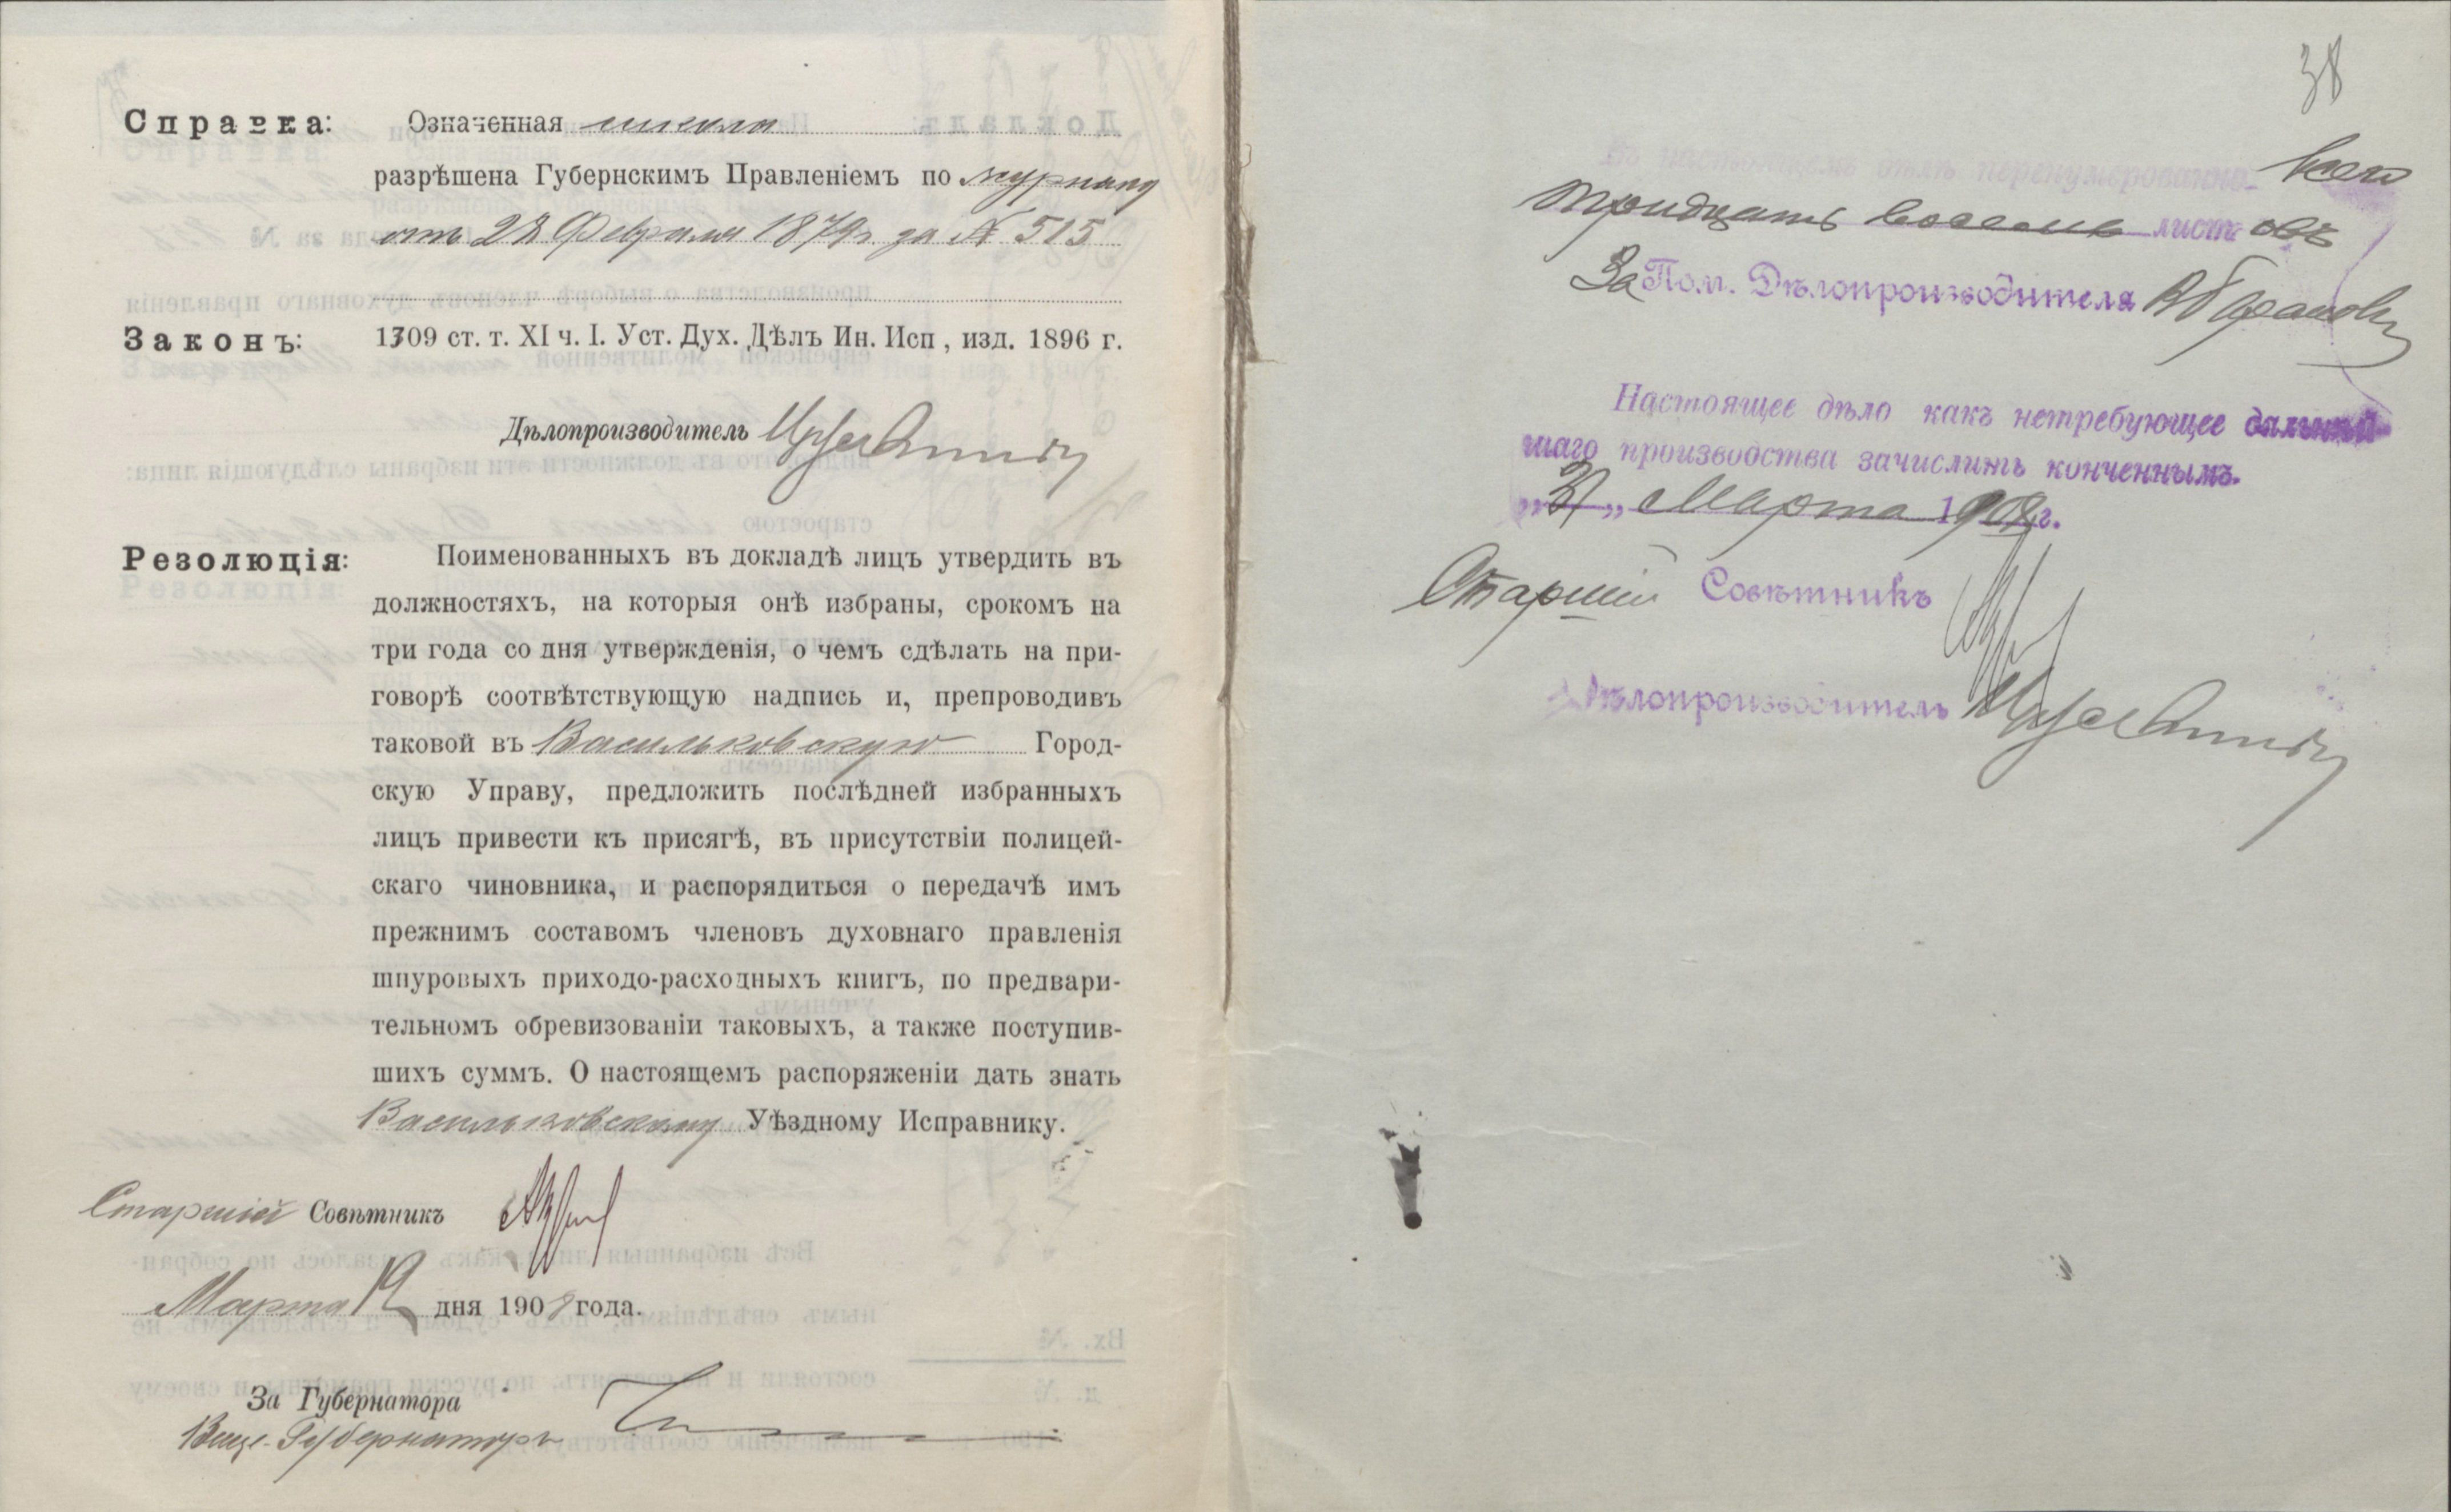 Справка: Означенная школа
разрѣшена Губернскимъ Правленіемъ по журналу
отъ 28 Февраля 1879 г. за № 515
Законъ: 1309 ст. т. XI ч. I. Уст. Дух. Дѣлъ Ин. Исп, изд. 1896 г.
Дѣлопроизводитель
Резолюція: Поименованныхъ въ докладѣ лицъ утвердить въ
должностяхъ, на которыя онѣ избраны, срокомъ на
три года со дня утвержденія, о чемъ сдѣлать на при-
говорѣ соотвѣтствующую надпись и, препроводивъ
таковой въ Васильковскую Город-
скую Управу, предложить послѣдней избранныхъ
лицъ привести къ присягѣ, въ присутствіи полицей-
скаго чиновника, и распорядиться о передачѣ имъ
прежнимъ составомъ членовъ духовнаго правленія
шнуровыхъ приходо-расходныхъ книгъ, по предвари-
тельномъ обревизованіи таковыхъ, а также поступив-
шихъ суммъ. О настоящемъ распоряженіи дать знать
Васильковскому Уѣздному Исправнику.
Старшій Совѣтникъ
Марта 12 дня 1908 года.
За Губернатора
Вице-Губернаторъ
38
въ настоящемъ дѣлѣ перенумеровано всего
тридцать восемь листовъ
За Пом. Дѣлопроизводителя
Настоящее дѣло какъ нетребующее дальнѣй
шаго производства зачислить конченнымъ.
Марта 1908 г.
Старшій Совѣтникъ
Дѣлопроизводитель